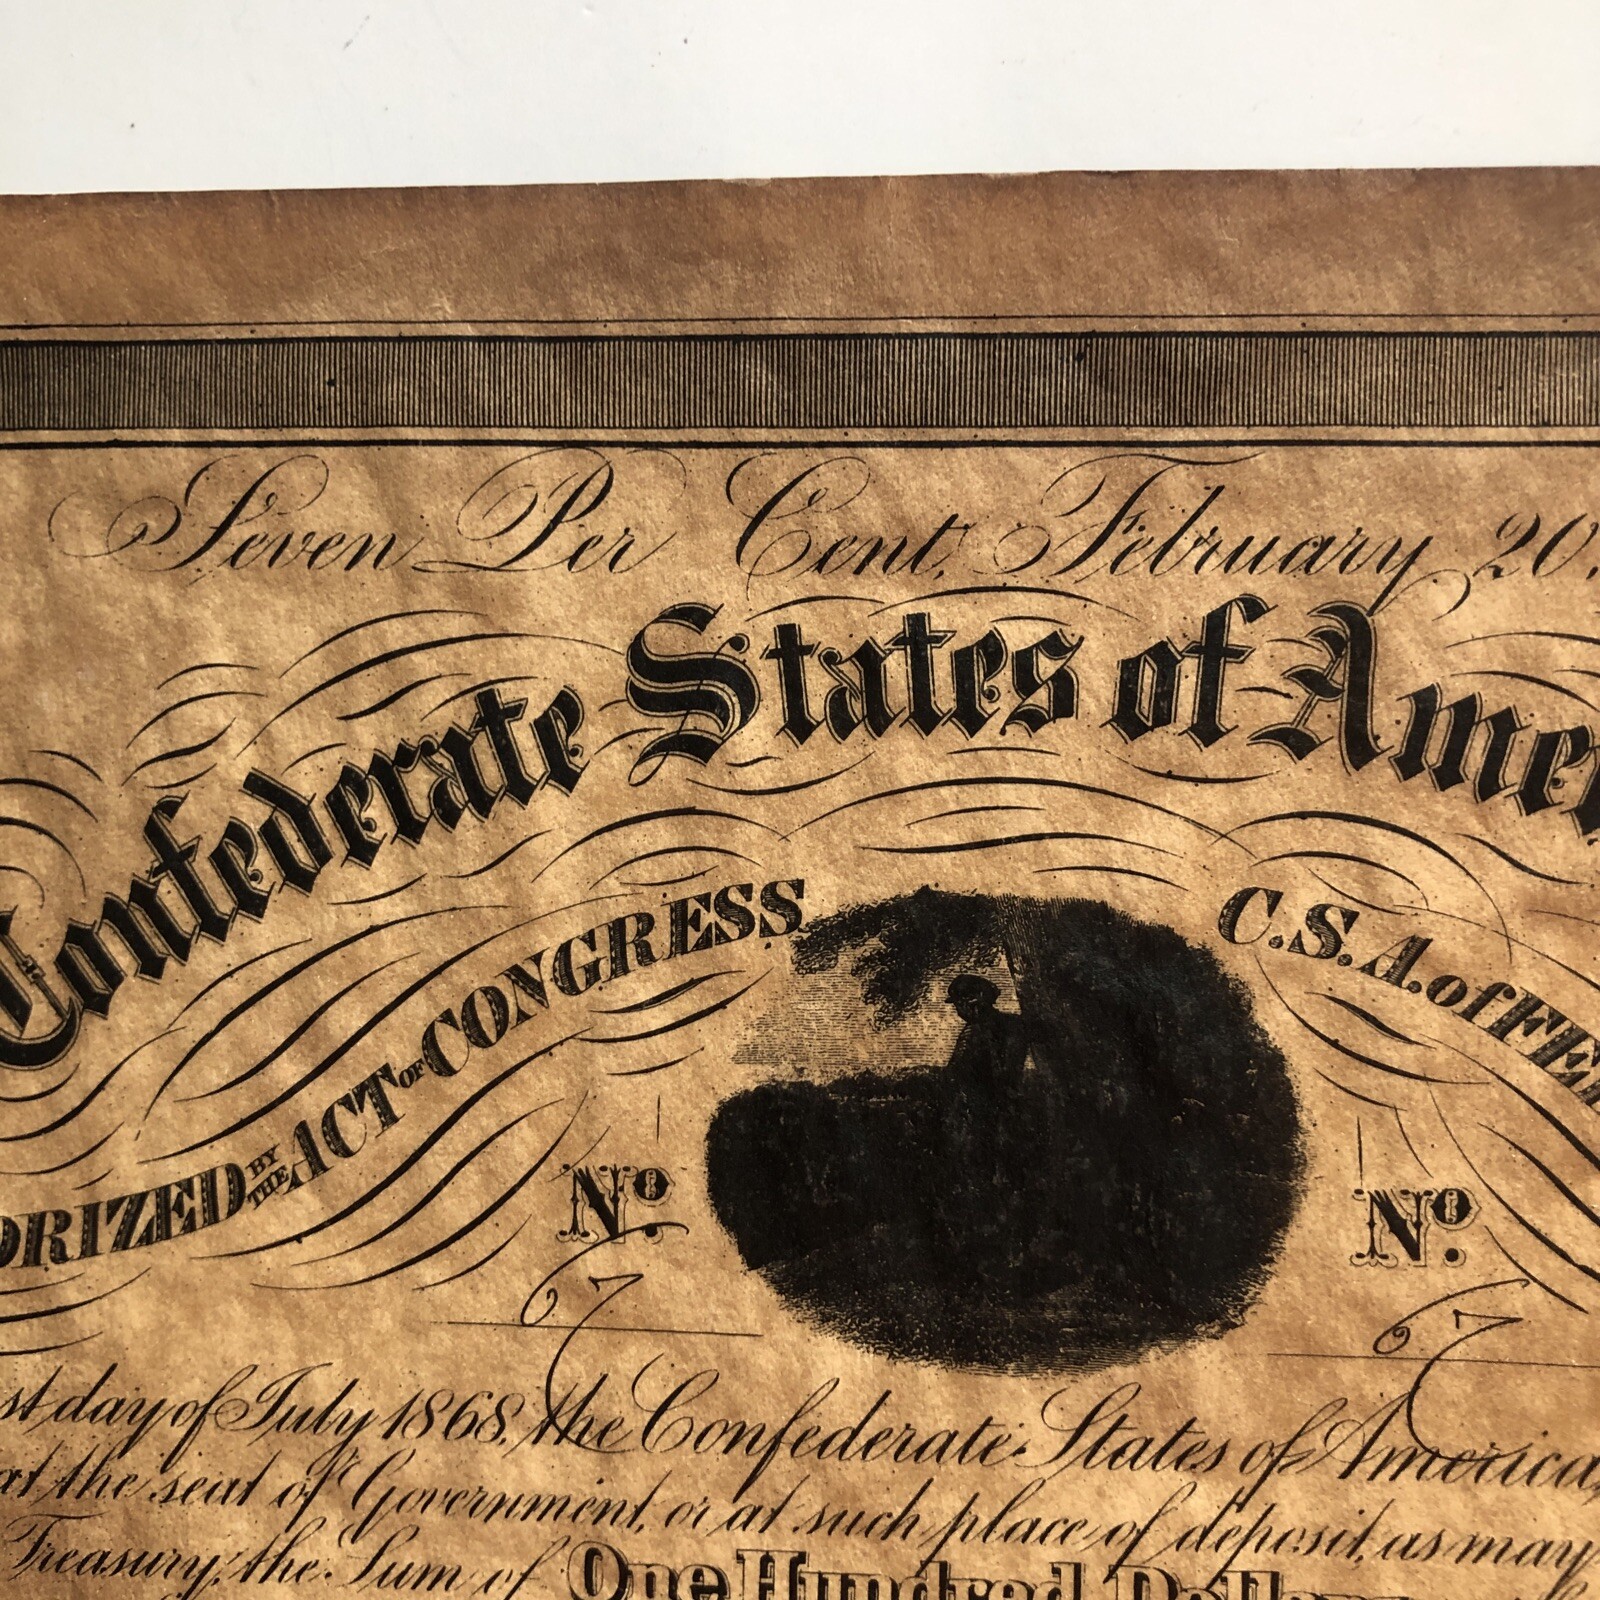 Seven Per Cent, February 20.
Confederate States of Ame
ORIZED BY THE ACT OF CONGRESS C.S.A. of FE
No. No.
7 7
st day of July 1868, the Confederate States of America,
at the seat of Government, or at such place of deposit, as may
Treasury, the Sum of One Hundred Dollar